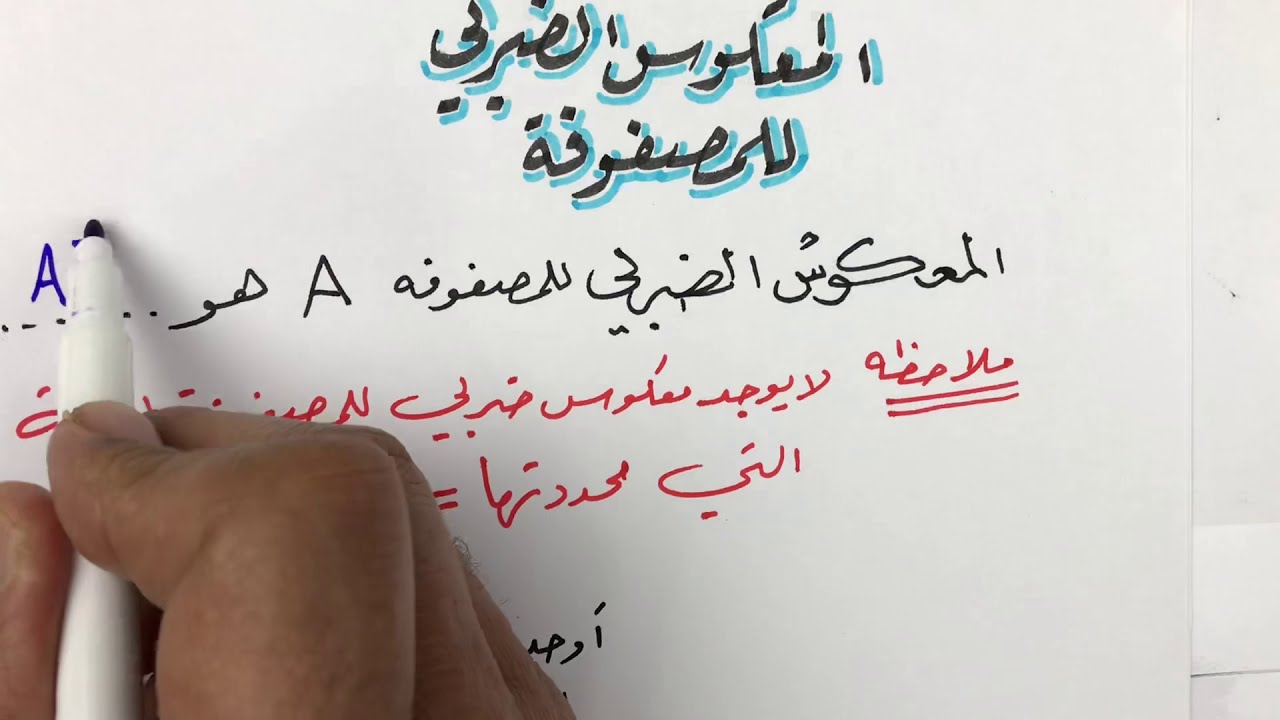 المعكوس الضربي
للمصفوفة
المعكوس الضربي للمصفوفه A هو ..... A
ملاحظه لا يوجد معكوس ضربي
التي محددتها =